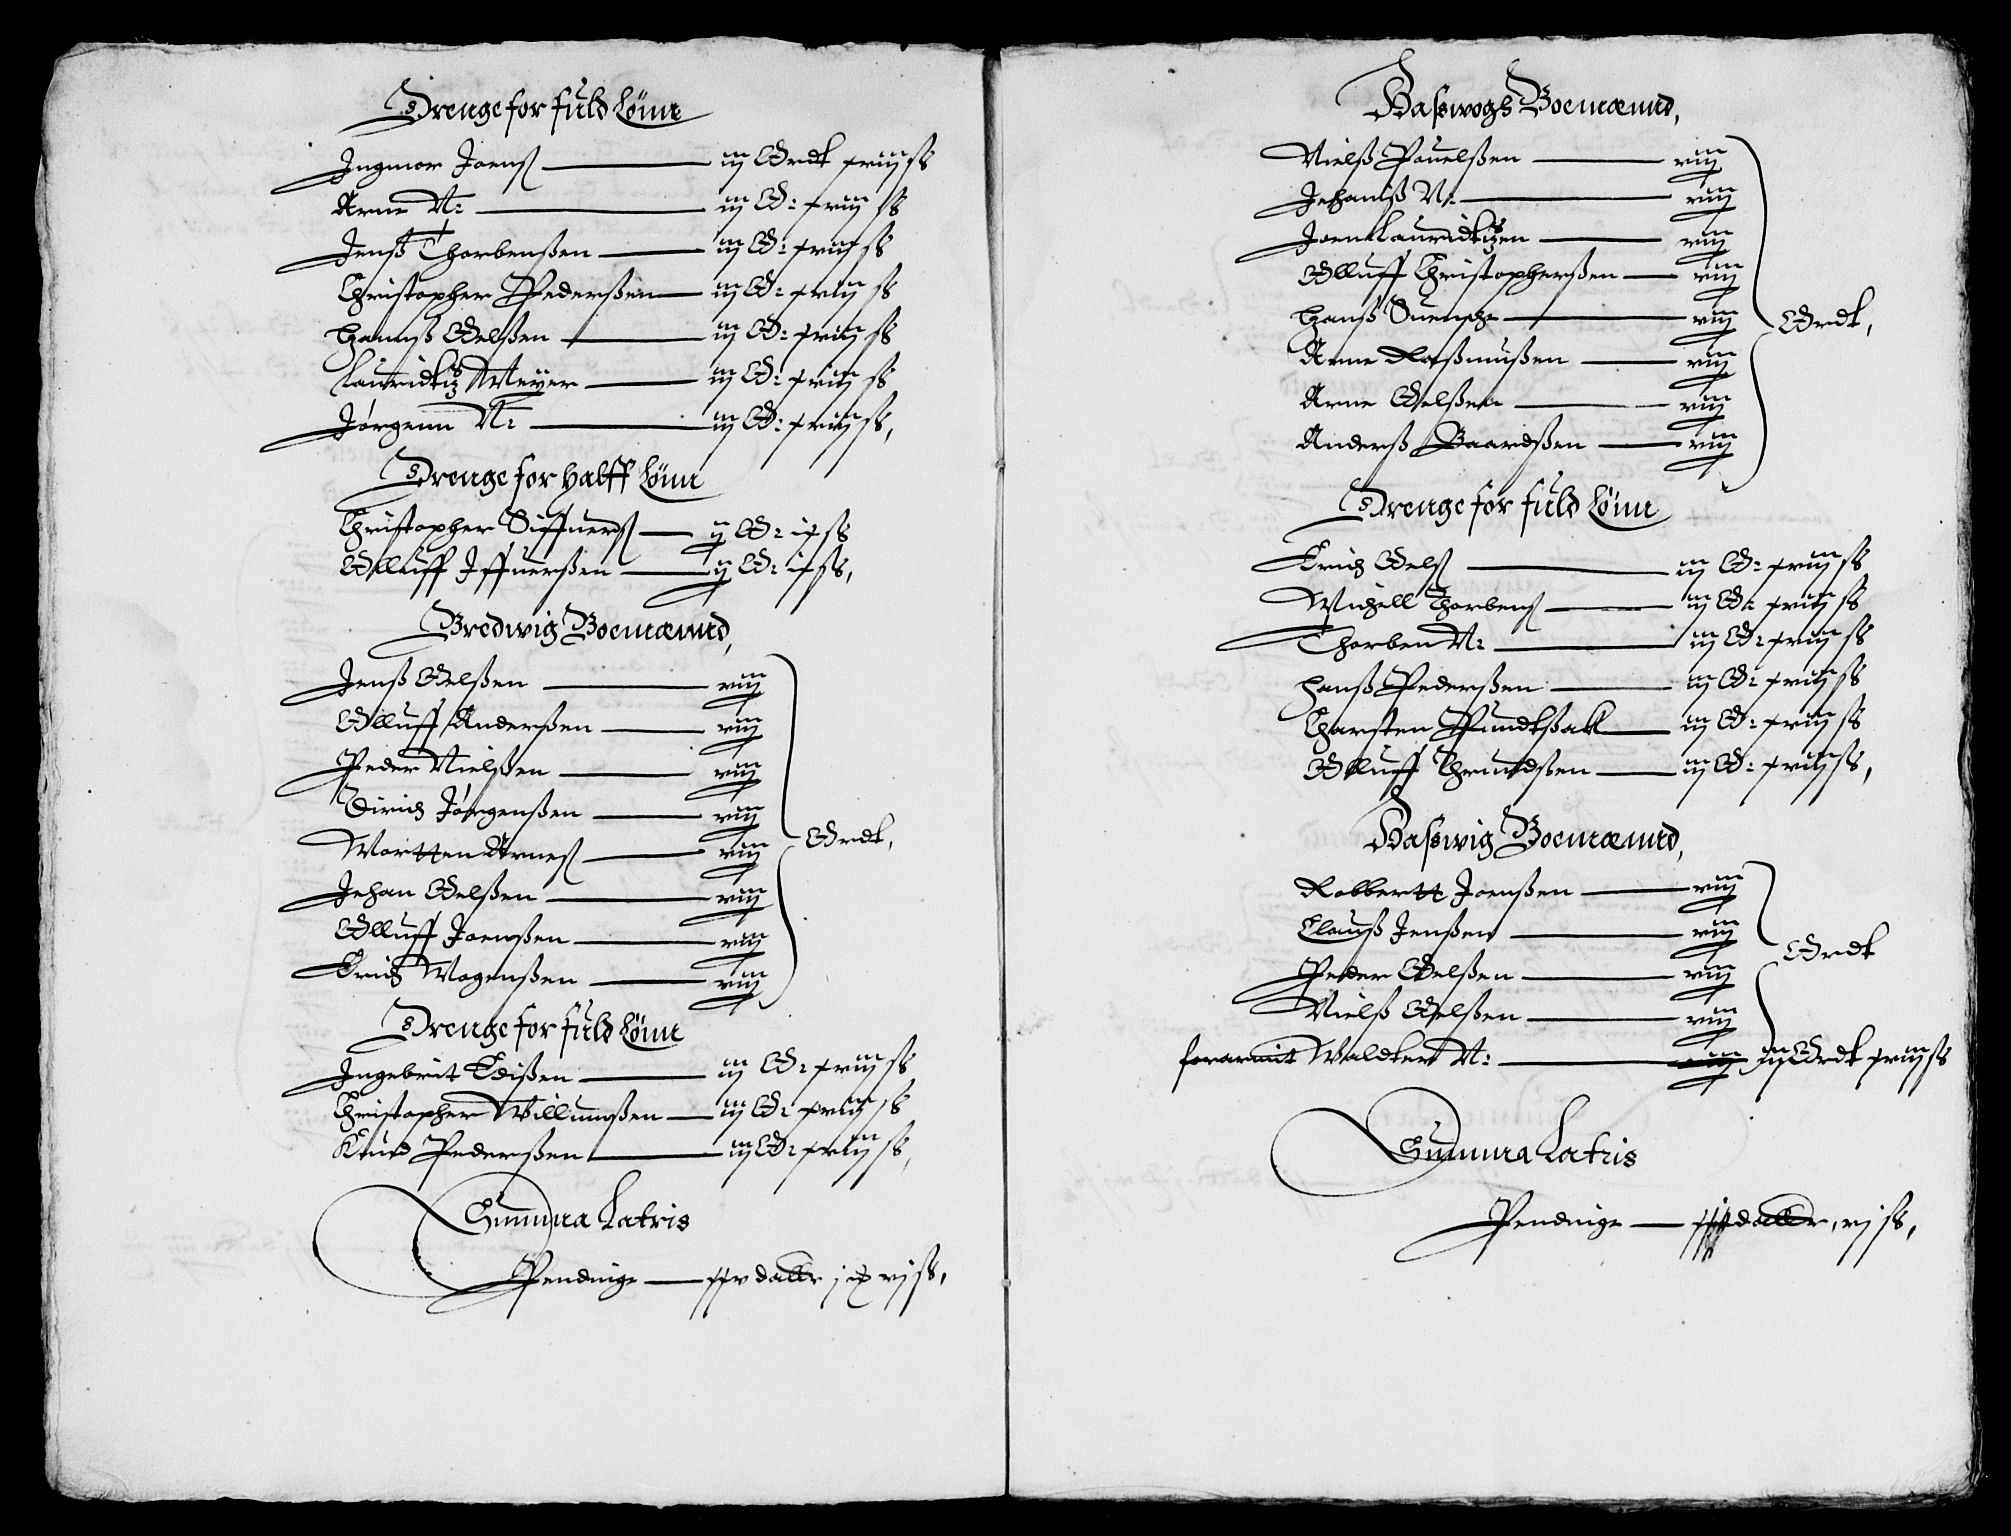 Drenge for fuld Lönn
Ingmor Joens iij Ordt xviij ss
Arne N: iij O: xviij ss
Jenß Thorbenßen iij O: xviij ss
Christopher Pederßen iij O: xviij ss
Hannß Oelßen iij O: xviij ss
Lauridtz Meyer iij O: xviij ss
Jørgenn N: iij O: xviij ss,
Drenge for halff Lönn
Christopher Siffuerds ij O: ix ss
Olluff Iffuerßen ij O: ix ss,
Bredwig Boemænnd,
Jenß Oelßen viij
Olluff Anderßen viij
Peder Nielßen viij
Dirich Jørgenßen viij
Mortten Arnes viij
Jehan Oelßen viij
Olluff Joenßen viij
Erich Mogenßen viij
Ordt,
Drenge for fuld Lönn
Ingebrit Edißen iij O: xviij ss
Christopher Willumßen iij O: xviij ss
Knud Pederßen iij O: xviij ss,
Summa Latris
Pendinge xxv daller j ort vj ss,
Baßwogs Boemænnd,
Nielß Pouelßen viij
Jehanß N: viij
Joen Lauridtzen viij
Olluff Christopherßen viij
Hanß Suensche viij
Arne Raßmußen viij
Arne Oelßen viij
Anderß Baardßen viij
Ordt,
Drenge for fuld Lönn
Erich Oels iij O: xviij ss
Michell Thorbens iij O: xviij ss
Thorben N: iij O: xviij ss
Hanß Pederßen iij O: xviij ss
Charsten Pundtßak iij O: xviij ss
Olluff Thrundßen iij O: xviij ss,
Baßwig Boemænnd,
Robbertt Joenßen viij
Clauß Jenßen viij
Peder Oelßen viij
Nielß Oelßen viij
Ordt
forarmit Woldter N: iij Ordt xviij ss
Summa Latris
Pendinge daller, vj ss,